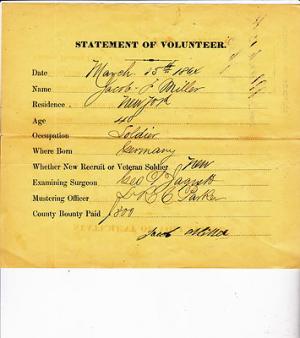 STATEMENT OF VOLUNTEER.
Date March 15th 1864
Name Jacob F Miller
Residence New York
Age 4
Occupation Soldier
Where Born Germany
Whether New Recruit or Veteran Soldier New
Examining Surgeon Geo
Mustering Officer Parker
County Bounty Paid 300
Jacob Miller